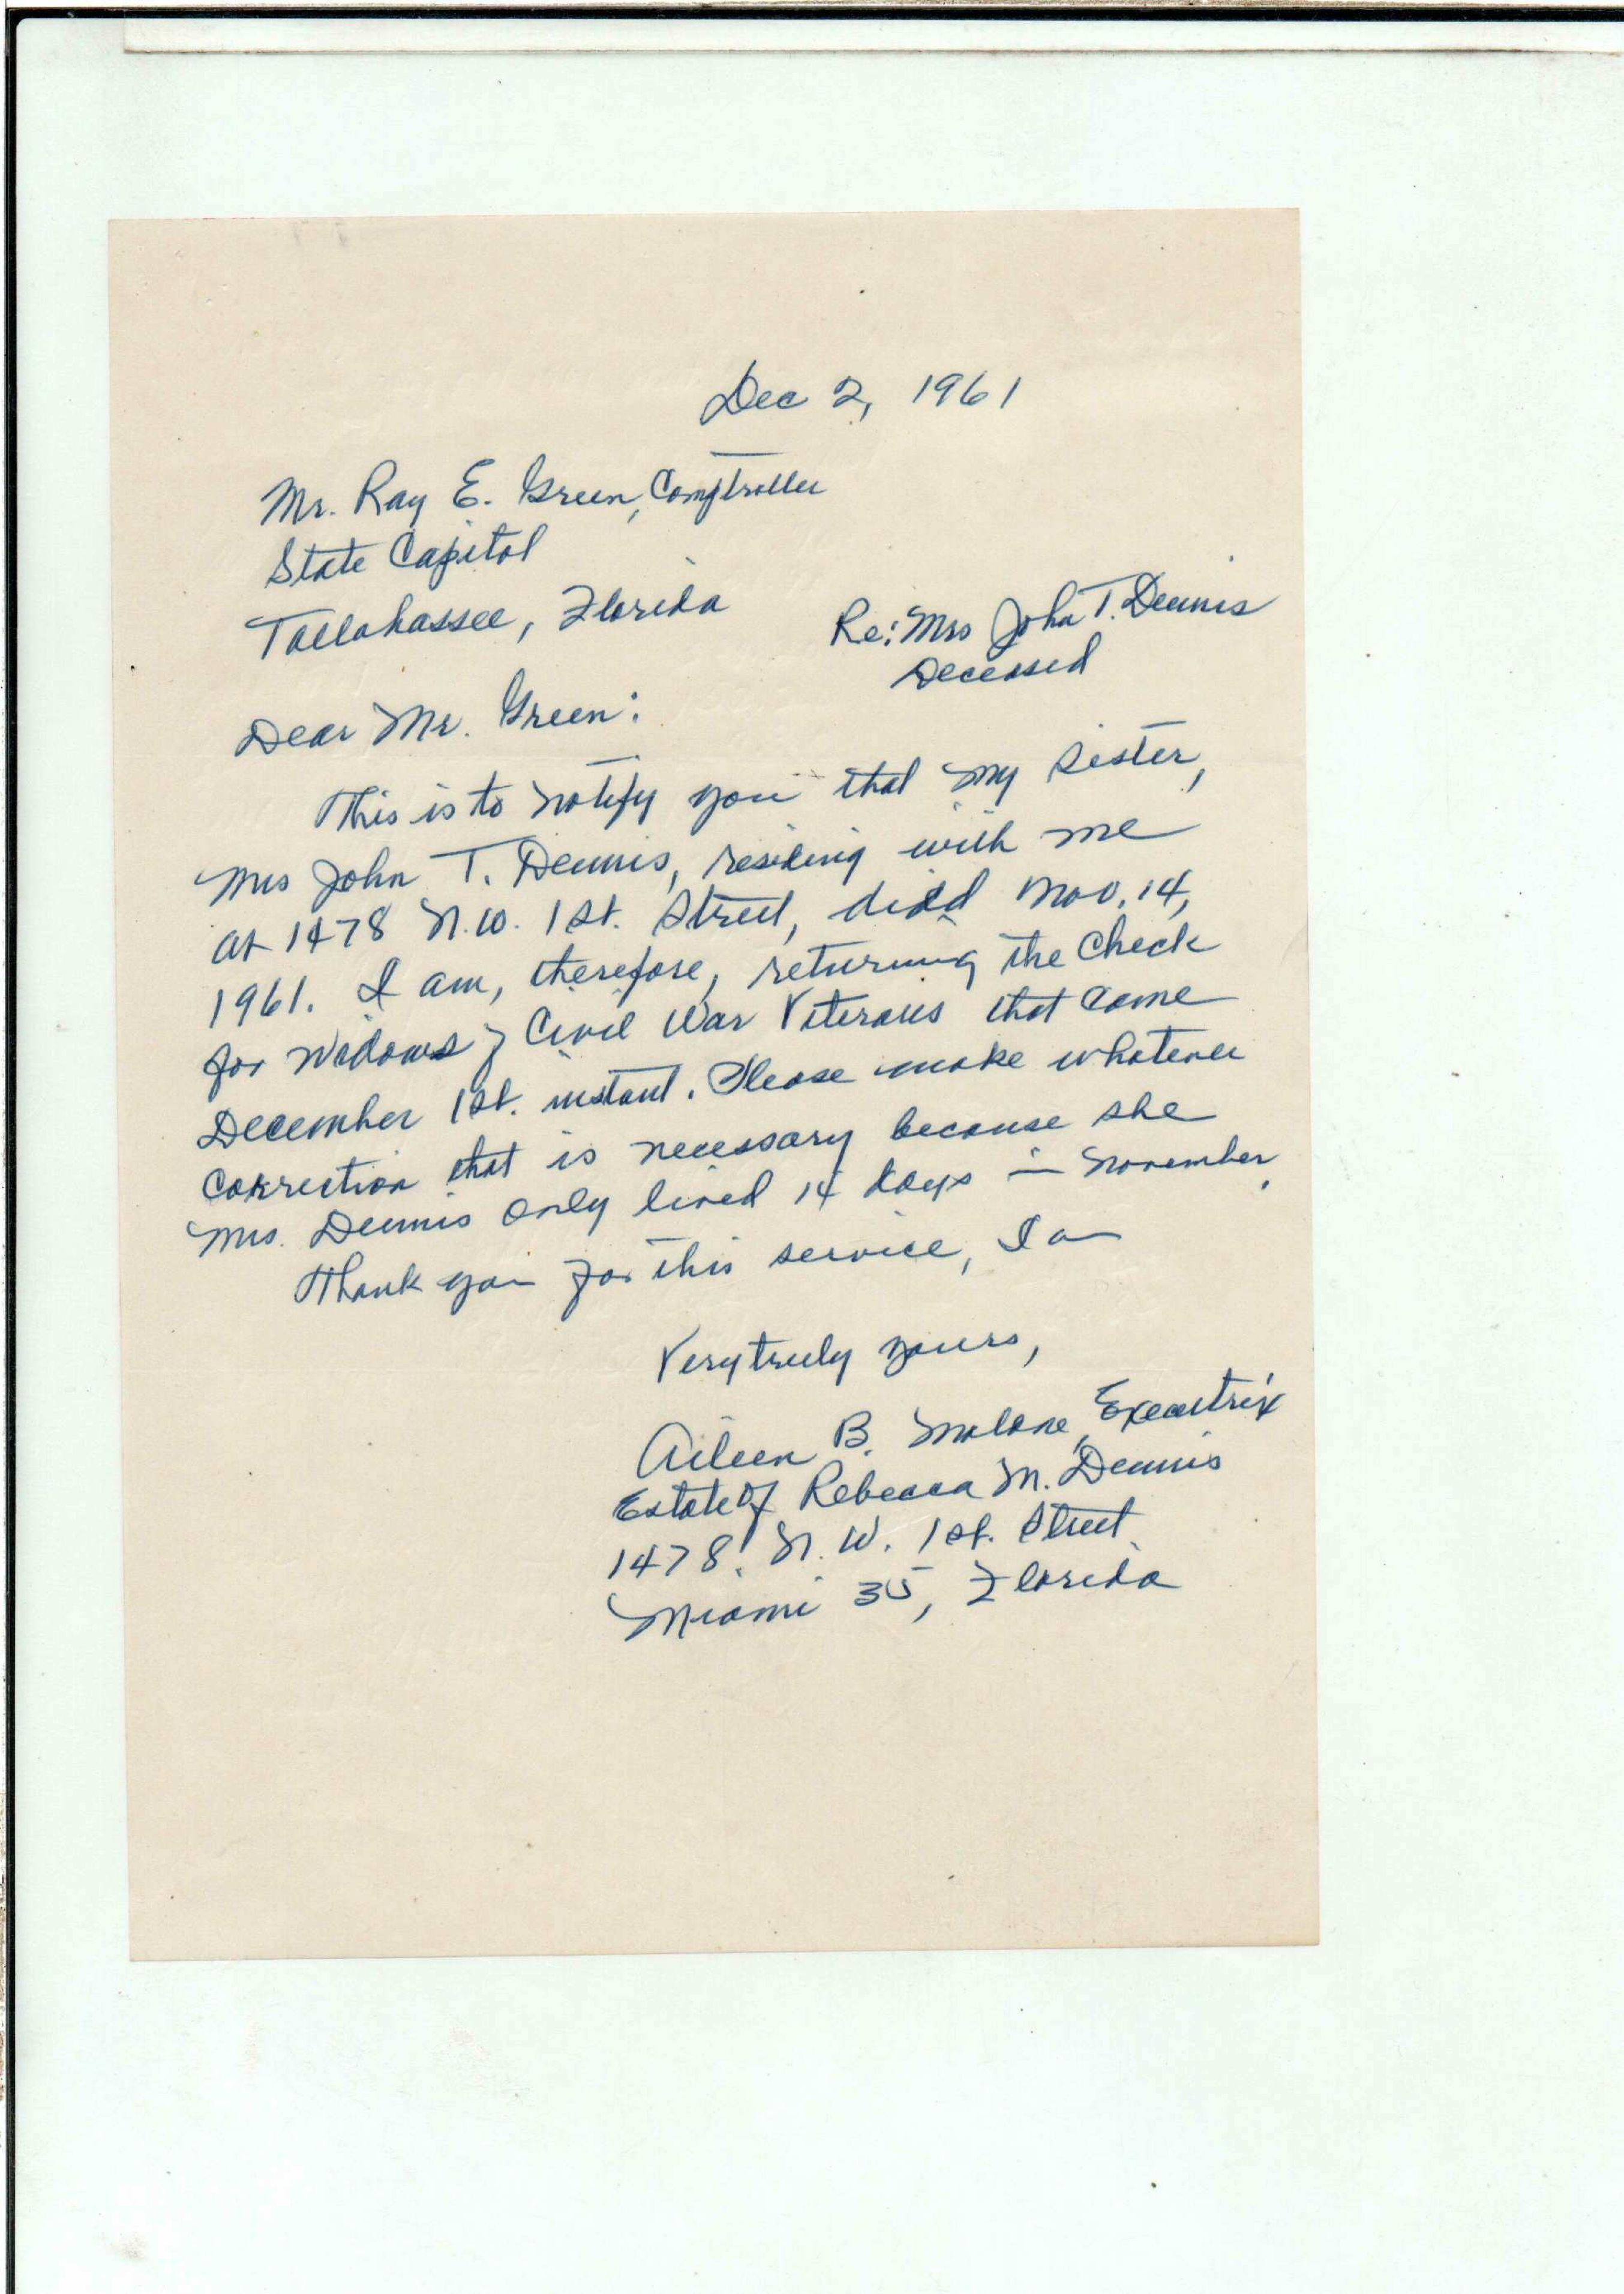 Dec 2, 1961
Mr. Ray E. Green, Comptroller
State Capitol
Tallahassee, Florida
Re: Mrs John T. Dennis
Deceased
Dear Mr. Green:
This is to notify you that my sister,
Mrs John T. Dennis, residing with me
at 1478 N.W. 1st. Street, died Nov. 14,
1961. I am, therefore, returning the check
for Widows of Civil War Veterans that came
December 1st. instant. Please make whatever
correction that is necessary because she
Mrs. Dennis only lived 14 days in November.
Thank you for this service, I am
Very truly yours,
Aileen B. Malone, Executrix
Estate of Rebecca M. Dennis
1478 N.W. 1st. Street
Miami 35, Florida